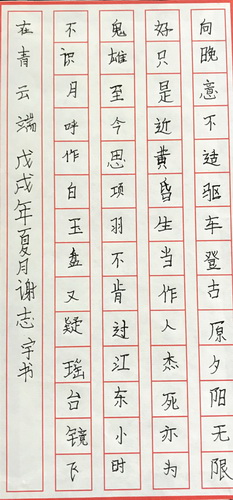 向晚意不适驱车登古原夕阳无限
好只是近黄昏生当作人杰死亦为
鬼雄至今思项羽不肯过江东小时
不识月呼作白玉盘又疑瑶台镜飞
在青云端戊戌年夏月谢志宇书